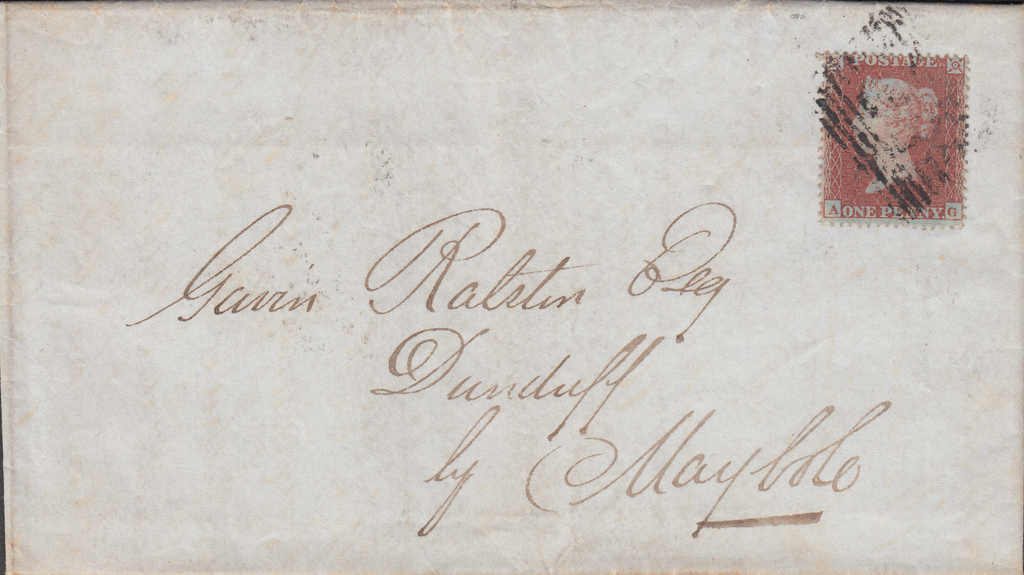 POSTAGE
A ONE PENNY G
Gavin Ralston Esq
Dunduff
by Maybole